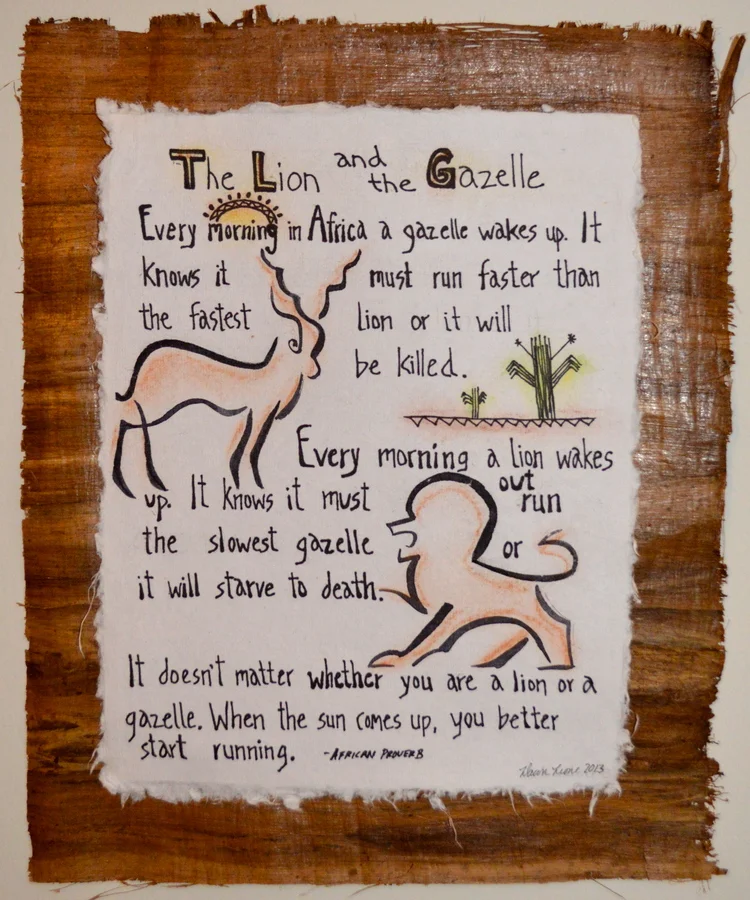 The Lion and the Gazelle
Every morning in Africa a gazelle wakes up. It
knows it must run faster than
the fastest lion or it will
be killed.
Every morning a lion wakes
up. It knows it must out run
the slowest gazelle or
it will starve to death.
It doesn't matter whether you are a lion or a
gazelle. When the sun comes up, you better
start running. -AFRICAN PROVERB
2013